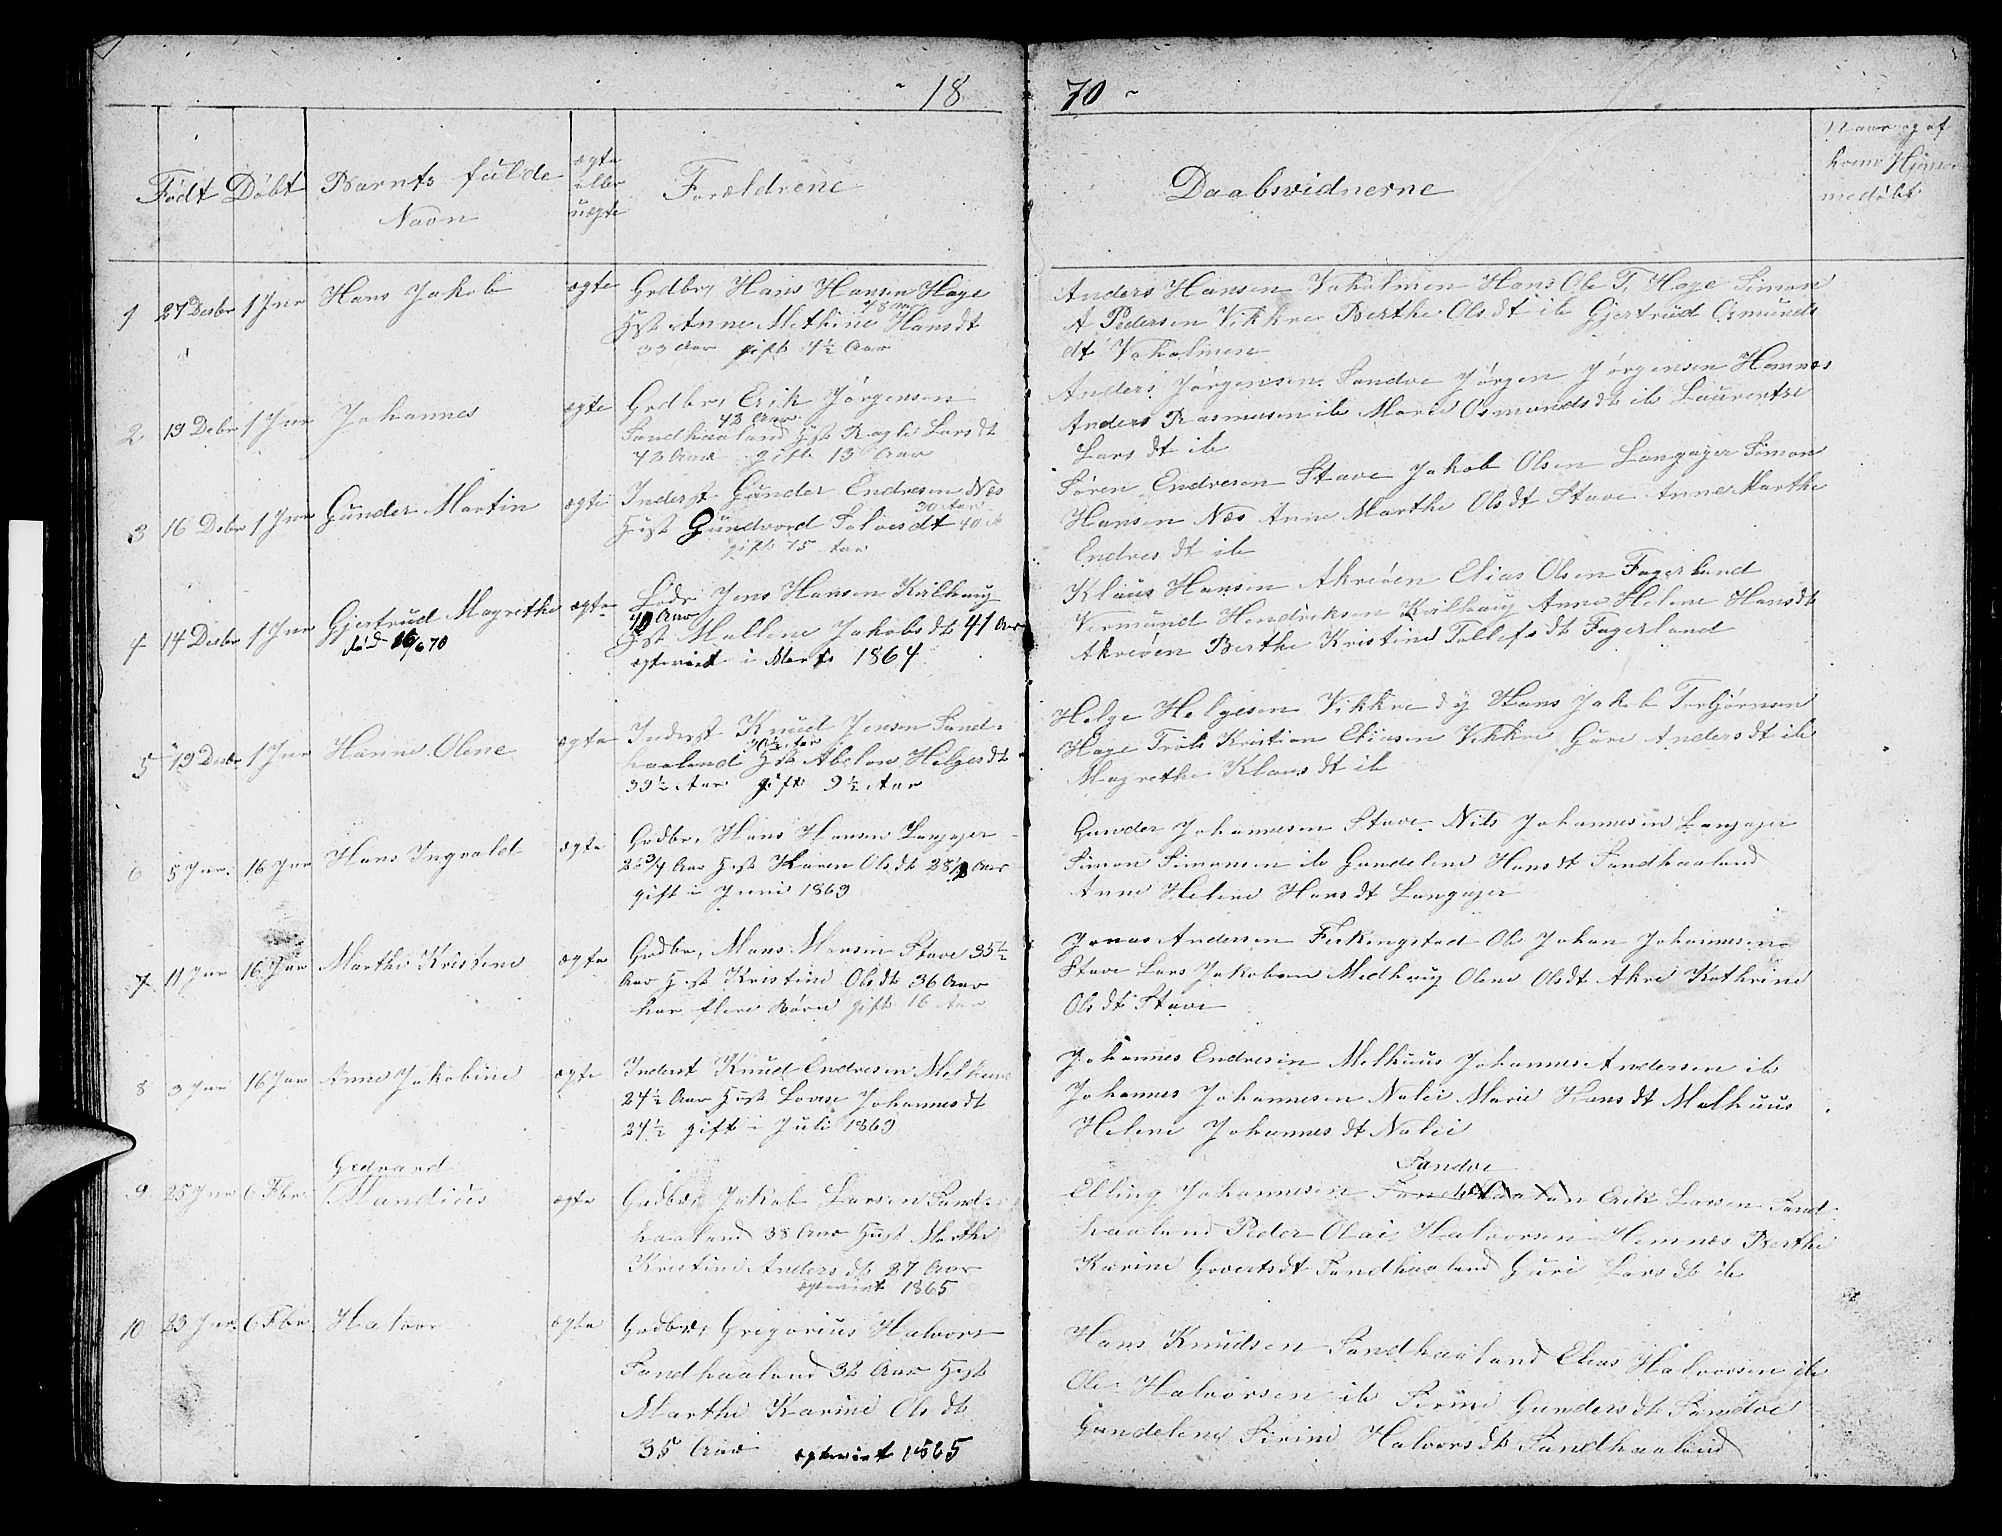 18 70
Født Døbt Barnets fulde Navn ægte eller uægte Forældrene Daabsvidnerne Naar og af hvem Hjemmedøbt
1 27 Desbr 1 Jnr Hans Jakob ægte Grdbr, Hans Hansen Hage
Hst Anne Methine Hansdt
33 Aar gift 4½ Aar
Anders Hansen Vaholmen Hans Ole T. Hage Simon
A Pedersen Vikkre Berthe Olsdt ib Gjertrud Osmunds
dt Vaholmen
2 19 Debr 1 Jnr Johannes ægte Grdbr, Erik Jørgensen
43 Aar
Sandhaaland Hst Ragle Larsdt
43 Aar gift 13 Aar
Anders Jørgensen Sandve Jørgen Jørgensen Hemnes
Anders Rasmusen ib Marie Osmundsdt ib Laurentse
Lars dt ib
3 16 Desbr 1 Jnr Gunder Martin ægte Inderst Gunder Endresen Næs
30 Aar
Hust Gundvord Salvesdt 40 A
gift 15 Aar
Søren Endresen Stave Jakob Olsen Langajer Simon
Hansen Næs Anne Marthe Olsdt Stave Anne Marthe
Endres dt ib
4 14 Desbr 1 Jnr Gjertrud Magrethe ægte Jens Hansen Kirlhaug
død 16/6 70
40 Aar
Hst Mallene Jakobsdt 41 Aar
egteviet i Marts 1864
Klaus Hansen Akreøen Elias Olsen Fagerland
Vermund Hendriksen Kirlhaug Anne Helene Hansdt
Akreøen Berthe Kristine Tollefsdt Fagerland
5 19 Desbr 1 Jnr Hanne Olene ægte Inderst Knud Jensen Sand-
30½ Aar
haaland Hst Abelon Helgesdt
39½ Aar gift 9½ Aar
Helge Helgesen Vikkre dy Hans Jakob Torbjørnsen
Hage Tröls Kristian Eliasen Vikkre Gure Andersdt ib
Magrethe Klausdt ib
6 5 Jnr. 16 Jnr Hans Ingvald ægte Grdbr, Hans Hansen Langajer
26 3/4 Aar Hst Karen Olsdt 28½ Aar
gift i Juni 1869
Gunder Johannesen Stave Nils Johannesen Langajer
Simon Simonsen ib Gundeline Hansdt Sandhaaland
Anne Helene Hansdt Langajer
7 11 Jnr 16 Jnr Marthe Kristine ægte Grdbr, Mons Monsen Stave 35½
Aar Hst Kristine Olsdt 36 Aar
har flere Børn gift 16 Aar
Jonas Andersen Ferkingstad Ole Johan Johannesen
Stave Lars Jakobsen Medhaug Olene Olsdt Akre Kathrine
Olsdt Stave
8 3 Jnr 16 Jnr Anne Jakobine ægte Inderst Knud Endresen Melhuus
24½ Aar Hst Lovise Johannesdt
24½ gift i Juli 1869
Johannes Endresen Melhuus Johannes Andersen ib
Johannes Johannesen Nalei Marie Hansdt Melhuus
Helene Johannesdt Nalei
9 25 Jnr 6 Fbr Gedvard
Mandius ægte Grdbr, Jakob Larsen Sand-
haaland 38 Aar Hust Marthe
Kristine Andersdt 27 Aar
egteviet 1865
Sandve
Elling Johannesen Sandhaalan Erik Larsen Sand-
haaland Peder Olai Halvorsen Hemnes Berthe
Karine Govertsdt Sandhaaland Guri Larsdt ib
10 23 Jnr. 6 Fbr Halvor ægte Grdbr, Grigorius Halvors
Sandhaaland 32 Aar Hust
Marthe Karine Olsdt
35 Aar egteviet 1865
Hans Knudsen Sandhaaland Elias Halvorsen ib
Ole Halvorsen ib Serine Gundersdt Sandve
Gundeline Sirine Halvorsdt Sandhaaland